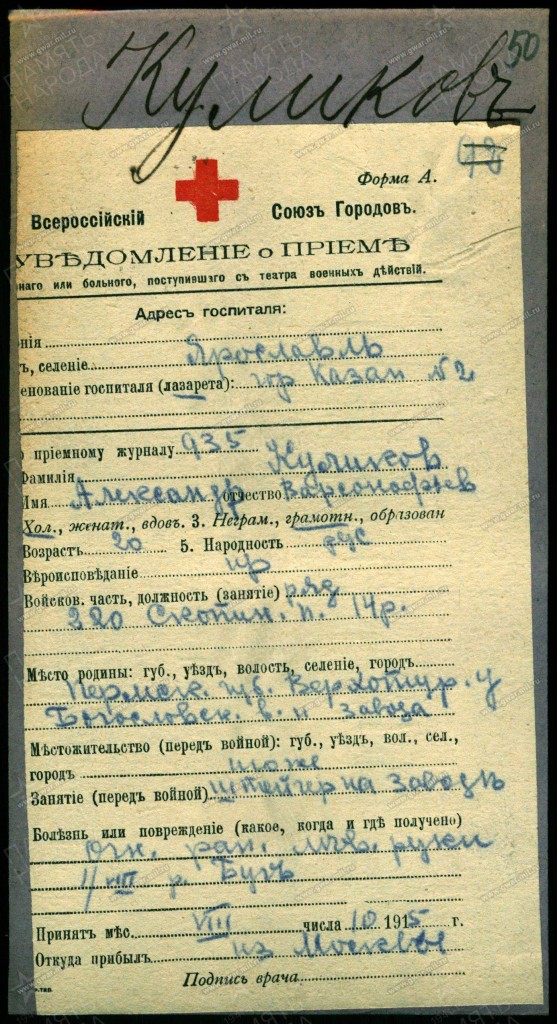 Куликовъ
50
98
Форма А.
Всероссійскій Союзъ Городовъ.
УВѢДОМЛЕНІЕ о ПРІЕМѢ
наго или больного, поступившаго съ театра военныхъ дѣйствій.
Адресъ госпиталя:
нія
ъ, селеніе Ярославль
енованіе госпиталя (лазарета): гор Казан №2
о пріемному журналу 935
Фамилія Куликов
Имя Александр отчество Варсонофьев
Хол., женат., вдовъ. 3. Неграм., грамотн., образован
Возрастъ 20 5. Народность рус
Вѣроисповѣданіе пр
Войсков. часть, должность (занятіе) ряд
220 Скопин. п. 14р.
Мѣсто родины: губ., уѣздъ, волость, селеніе, городъ
Пермск. губ. Верхотур. у
Богословск. в. и завода
Мѣстожительство (передъ войной): губ., уѣздъ, вол., сел.,
городъ тоже
Занятіе (передъ войной) штейгер на заводѣ
Болѣзнь или поврежденіе (какое, когда и гдѣ получено)
Огн. ран. лѣв. руки
VIII р. Бугъ
Принятъ мѣс. VIII числа 10 1915 г.
Откуда прибылъ из Москвы
Подпись врача